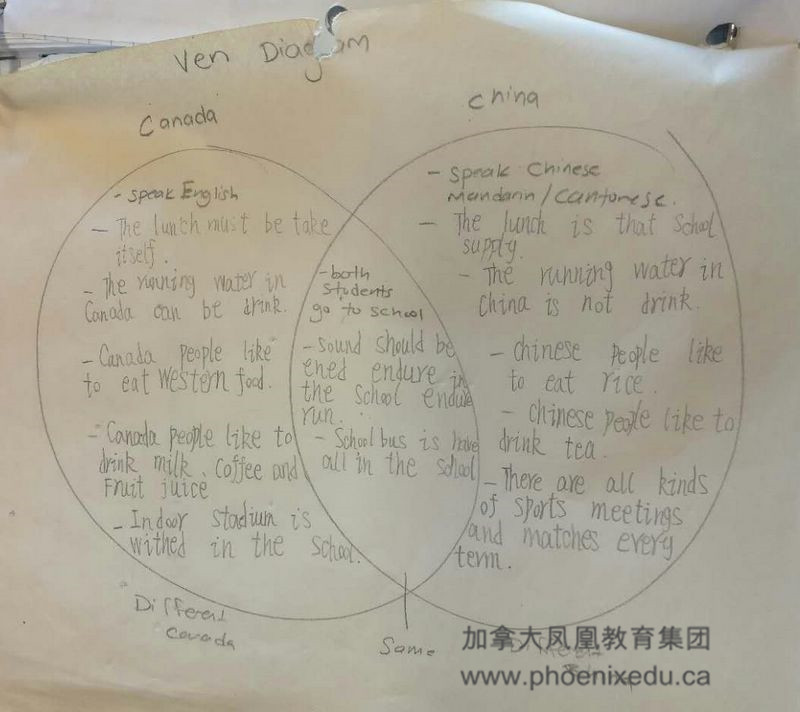 Ven Diagram
Canada
- speak English
- The lunch must be take
itself.
- The running water in
Canada can be drink.
- Canada people like
to eat western food.
- Canada people like to
drink milk、Coffee and
Fruit juice
- Indoor stadium is
withed in the school.
Different
Canada
- both
students
go to school
- sound should be
ened endure in
the school endure
run.
- School bus is have
all in the school
Same
China
- speak Chinese
Mandarin/Cantonese.
- The lunch is that School
supply.
- The running water in
China is not drink.
- Chinese people like
to eat rice.
- Chinese people like to
drink tea.
- There are all kinds
of sports meetings
and matches every
term.
加拿大凤凰教育集团
www.phoenixedu.ca